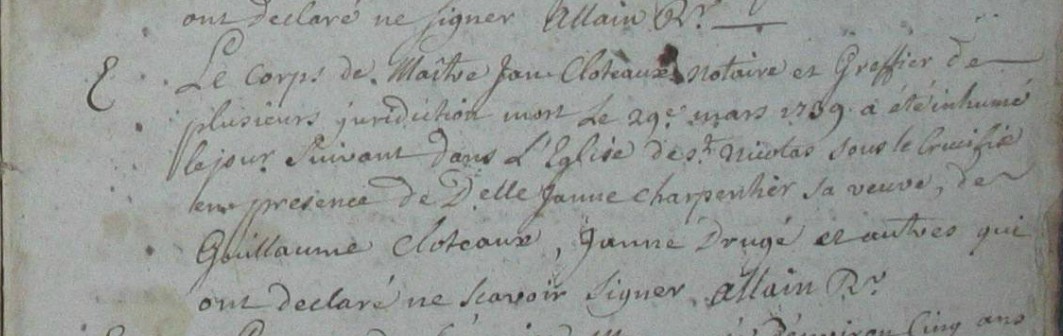 ont declaré ne signer Allain Rr.
E Le corps de Maître Jan Cloteaux Notaire et Greffier de
plusieurs juridiction mort le 29e mars 1739 a été inhumé
le jour suivant dans L'Eglise de st. Nicolas sous le Crucifix
en presence de D.elle Janne Charpentier sa veuve, de
Guillaume Cloteaux, Janne Drugé et autres qui
ont declaré ne scavoir signer Allain Rr
d'environ Cinq ans